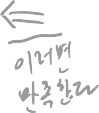 이러면
만족한다